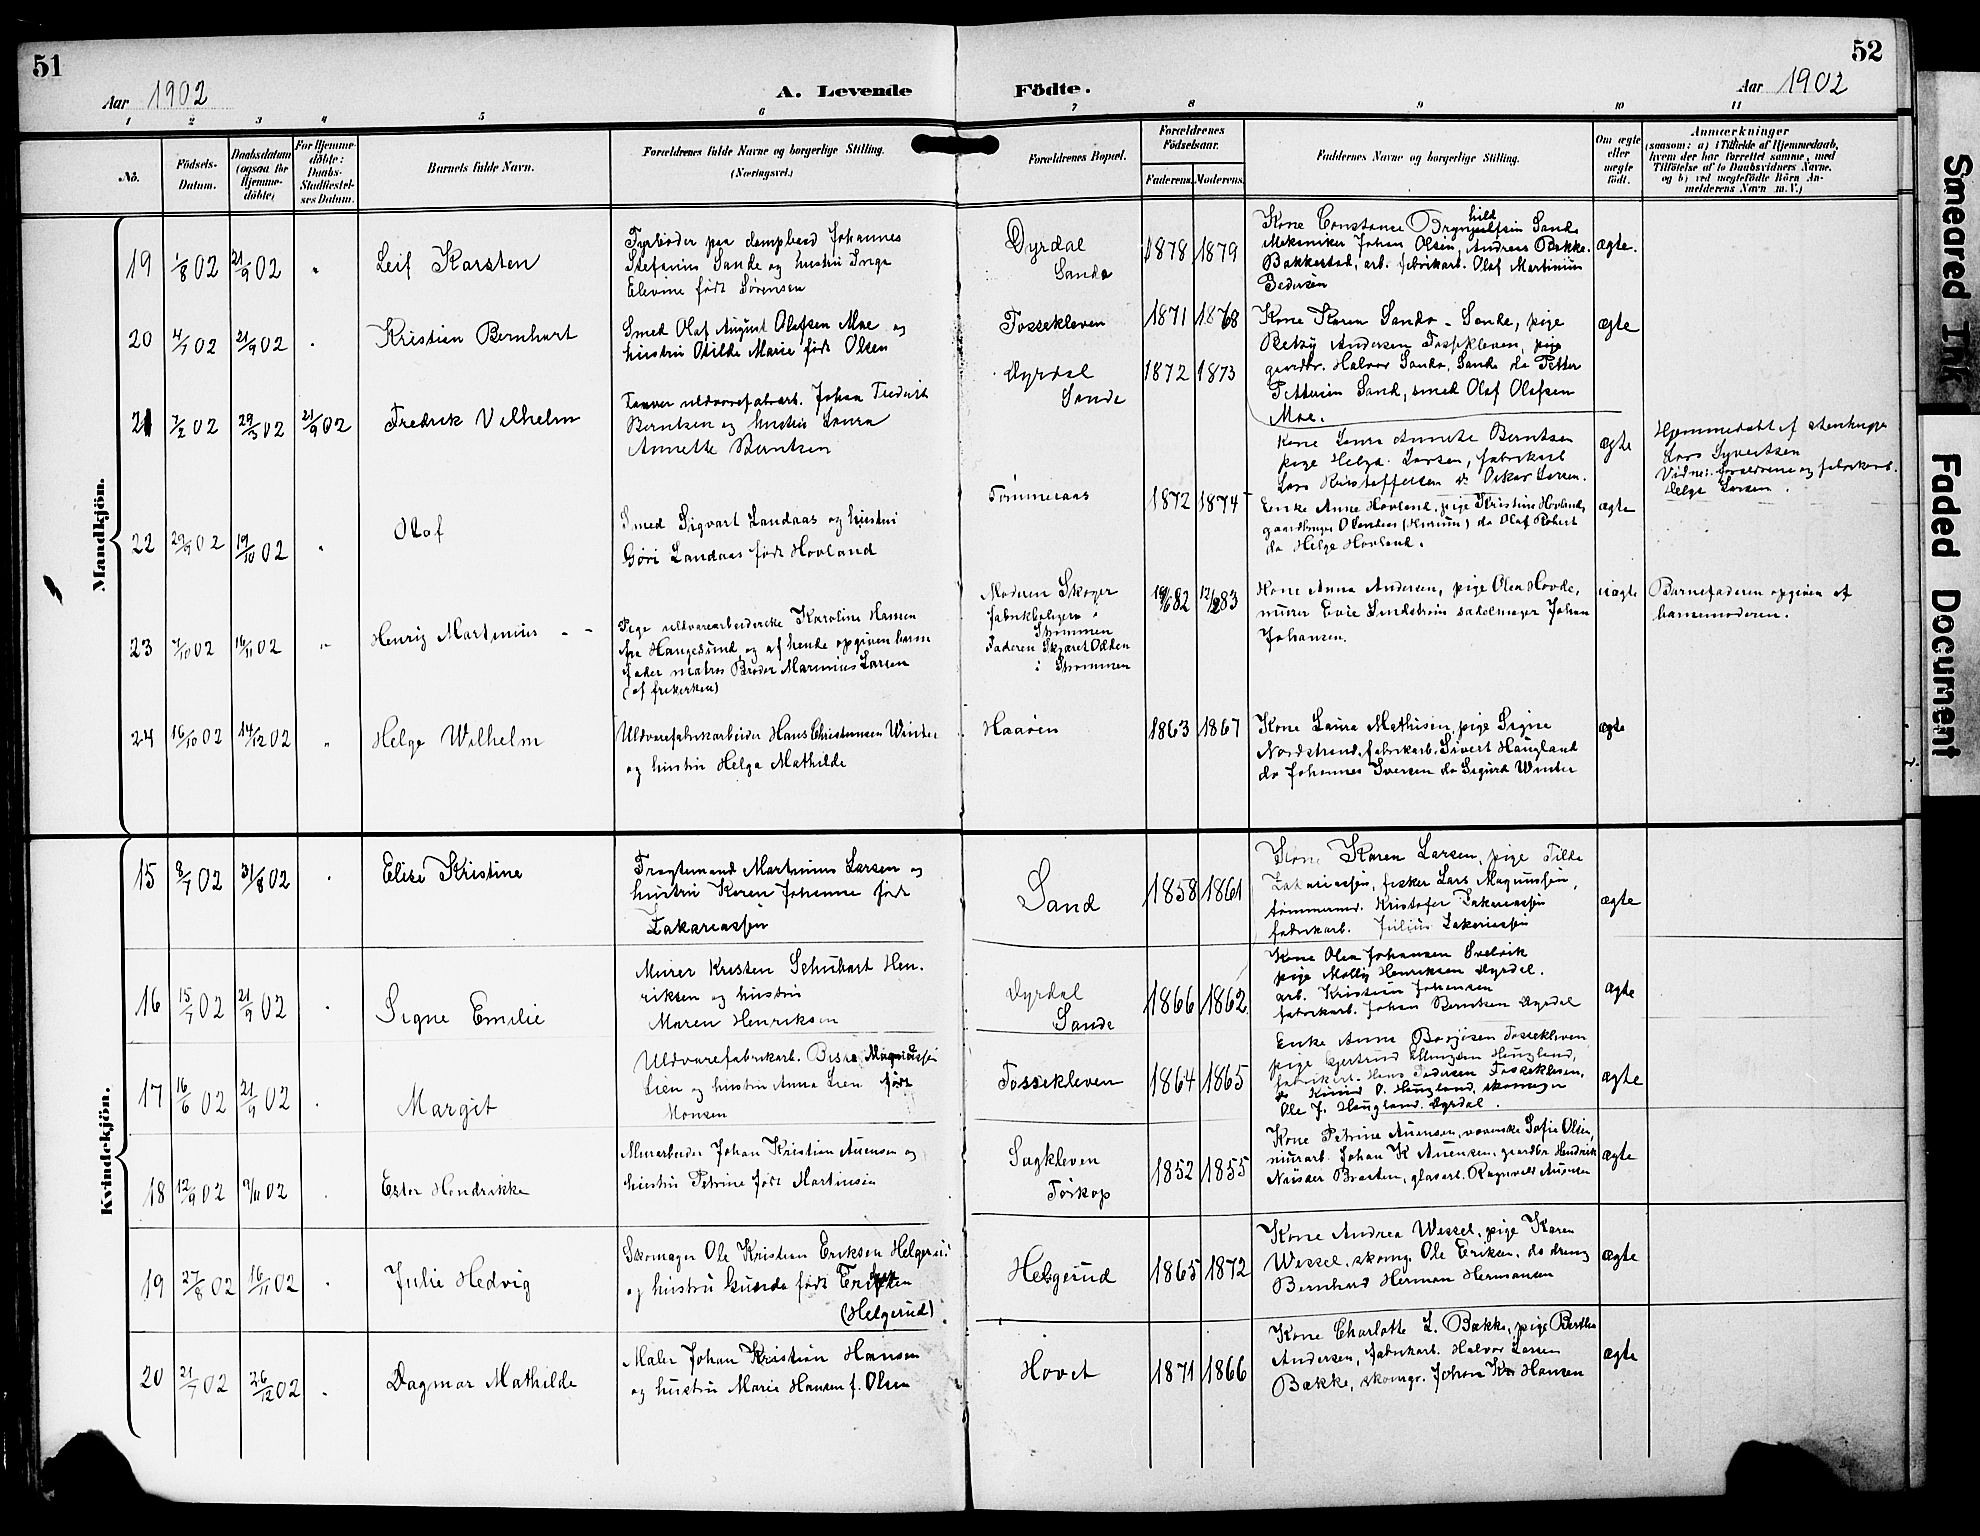 51
Aar 1902
A. Levende
Födte.
52
Aar 1902
1 2 3 4 5 6 7 8 9 10 11
No.
Födsels-
Datum.
Daabsdatum
(ogsaa for
Hjemme-
döbte)
For Hjemme-
döbte:
Daabs-
Stadfæstel-
ses Datum.
Barnets fulde Navn.
Forældrenes fulde Navne og borgerlige Stilling.
(Næringsvei.)
Forældrenes Bopæl.
Forældrenes
Födselsaar.
Faderens. Moderens.
Faddernes Navne og borgerlige Stilling.
Om ægte
eller
uægte
födt.
Anmærkninger
(saasom: a) i Tilfælde af Hjemmedaab,
hvem der har forrettet samme, med
Tilföielse af to Daabsvidners Navne,
og b) ved uægtefödte Börn An-
melderens Navn m. V.)
Mandkjön.
19 1/8 02 21/9 02 " Leif Karsten
Fyrböder paa dampbaad Johannes
Stefanius Sande og hustru Inga
Elevine født Sørensen
Dyrdal
Sande
1878 1879
Kone Constance Brynhild Sande
Mekaniker Johan Olsen, Andreas Bakke
Bakkestad, arb. fabrikarb. Olaf Martinius
Pedersen
ægte.
20 4/7 02 21/9 02 " Kristian Bernhart
Smed Olaf August Olafsen Moe og
hustru Otilde Marie født Olsen
Fossekleven
1871 1868
Kone Karen Sande - Sande, pige
Betzy Andersen Fossekleven, pige
gaardbr. Halvor Sande, Sande do Petter
Pettersen Sand, smed Olaf Olafsen
Moe.
ægte
21 7/2 02 29/3 02 21/9 02 Fredrik Vilhelm
uldvarefabrarb. Johan Fredrik
Berntsen og hustru Laura
Annette Berntsen
Dyrdal
Sande
1872 1873
Kone Laura Annette Berntsen
pige Helga Larsen, fabrikarb
Lars Kristoffersen do Oskar Larsen.
ægte
Hjemmedøbt af stenhugger
Lars Syvertsen
Vidner: forældrene og fabrikarb.
Helga Larsen.
22 29/9 02 19/10 02 " Olaf
Smed Sigvart Landaas og hustru
Gøri Landaas født Hovland
Tømmeraas
1872 1874
Enke Anne Hovland, pige Kristine Hovland,
do Olaf Robert
do Helge Hovland.
ægte
23 7/10 02 16/11 02 " Henrig Martinius
Pige uldvarearbeiderske Karoline Hansen
fra Haugesund og af hende opgiven barne
fader matros Brøder Marinius Larsen
(af frikirken)
Moderen Skoger
fabrikboliger i
Strømmen
Faderen Skjæret Odden
i Strømmen
1882 1883
Kone Anna Andersen, pige Olea Hovde,
murer Evie Lindstrøm sadelmager Johan
Johansen.
uægte
Barnefaderen opgiven af
barnemoderen.
24 16/10 02 14/12 02 " Helge Wilhelm
Uldvarefabrikarbeider Hans Christensen Winter
og hustru Helga Mathilde
Haaøen
1863 1867
Kone Laura Mathisen, pige Signe
Nordstrand, fabrikarb. Sivert Haugland
do Johannes Iversen do Sigurd Winter
ægte
Kvindekjön.
15 8/7 02 31/8 02 " Elise Kristine
Fragtemand Martinius Larsen og
hustru Karen Johanne født
Zakariassen
Sand
1858 1861
Kone Karen Larsen, pige Tilda
Zakariassen, fisker Lars Magnussen,
tømmermd. Kristofer Zakariassen
fabrikarb. Julius Zakariassen
ægte
16 15/7 02 21/9 02 " Signe Emilie
Murer Kristen Schubart Hen-
riksen og hustru
Maren Henriksen
Dyrdal
Sande
1866 1862
Kone Olea Johansen Svelvik
pige Molly Henriksen Dyrdal.
arb. Kristian Johansen
fabrikarb. Johan Berntsen Dyrdal
ægte
17 16/6 02 21/9 02 " Margit
Uldvarefabrikarb.
Lien og hustru Anna Lien født
Monsen
Fossekleven
1864 1865
Enke Anne Fossekleven
pige Gjertrud Ellingsen Haugland,
fabrikarb. Hans Pedersen Fossekleven,
do Knud O. Haugland, skomager
Ole J. Haugland. Dyrdal.
ægte
18 12/9 02 9/11 02 " Ester Hendrikke
Murarbeider Johan Kristian Auensen og
hustru Petrine født Martinsen
Sagkleven
Torkop
1852 1855
Kone Petrine Auensen, væverske Sofie Olsen,
murarb. Johan K Auensen, gaardbr Hendrik
Braaten, glasarb. Ragnvald Auensen
ægte
19 27/8 02 16/11 02 " Julie Hedvig
Skomager Ole Kristian Eriksen Helgerud
og hustru Gusta født Eriksen
(Helgerud).
Helgerud
1865 1872
Kone Andrea Wessel, pige Karen
Wessel, skomg. Ole Eriksen, do dreng
Bernhard Herman Hermansen
ægte
20 21/7 02 26/12 02 " Dagmar Mathilde
Maler Johan Kristian Hansen
og hustru Marie Hansen f. Olsen
Hovet
1871 1866
Kone Charlotte L. Bakke, pige Bertha
Andersen, fabrikarb. Halvor Larsen
Bakke, skomgr. Johan Kr Hansen
ægte
Smeared Ink
Faded Document